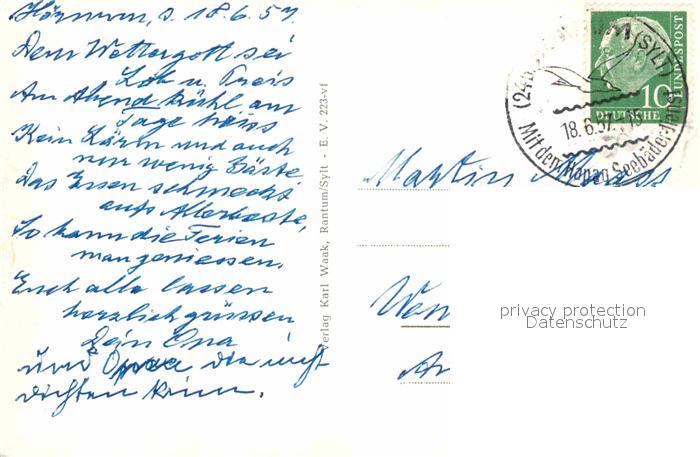 Hörnum, d. 18.6.57.
Dem Wettergott sei
Lob u. Preis
Am Abend kühl am
Tage heiss
Kein Lärm und auch
nur wenig Gäste
Das Essen schmeckt
aufs Allerbeste,
So kann die Ferien
man geniessen.
Euch alle lassen
herzlich grüssen
Dein Oma
und Opa die nicht
dichten kann.
Verlag Karl Waak, Rantum/Sylt - E. V. 223-vf
DEUTSCHE BUNDESPOST
10
(SYLT)
18.6.57.-18
Mit dem Hapag Seebäderdienst
Martin
privacy protection
Datenschutz